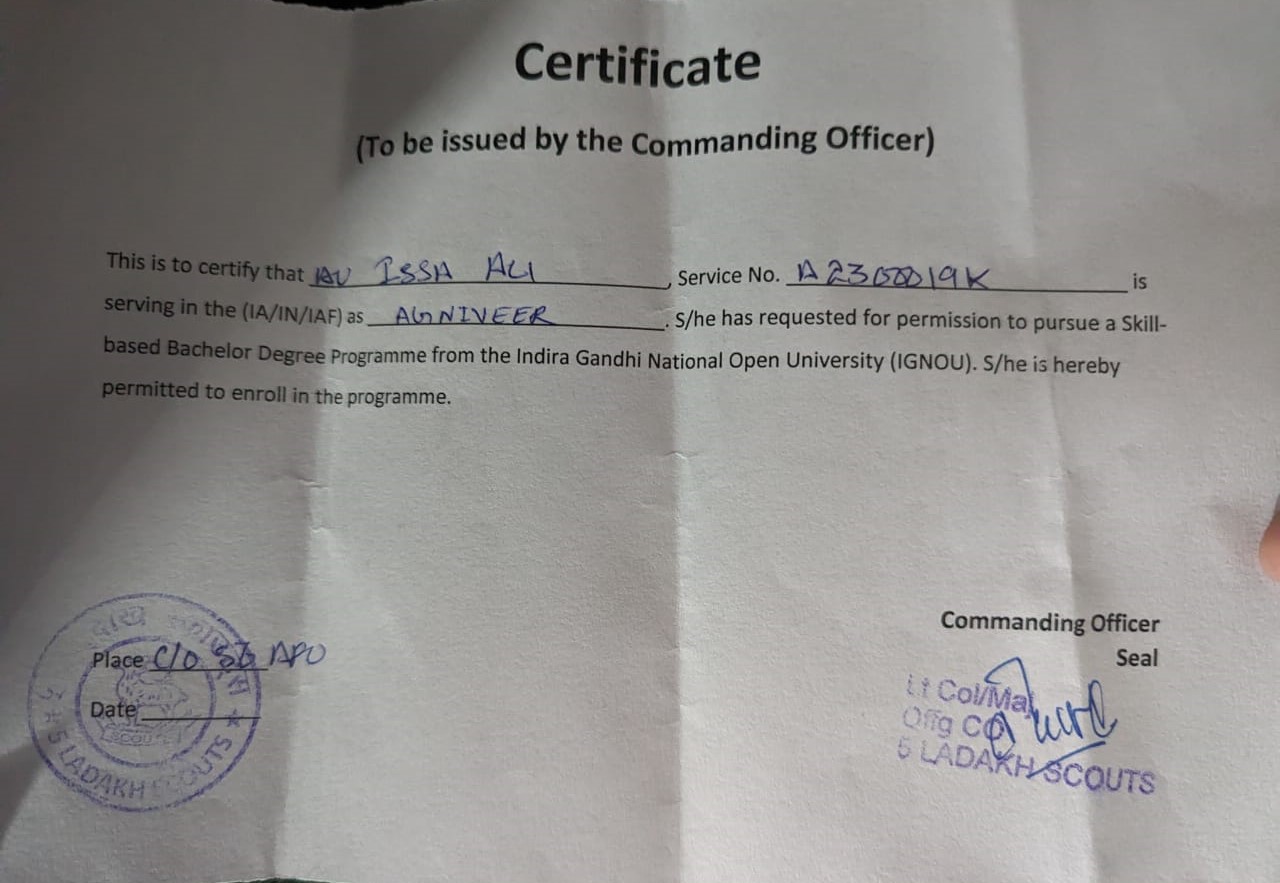 Certificate
(To be issued by the Commanding Officer)
This is to certify that AV ISSA ALI, Service No. A2300019K is
serving in the (IA/IN/IAF) as AGNIVEER. S/he has requested for permission to pursue a Skill-
based Bachelor Degree Programme from the Indira Gandhi National Open University (IGNOU). S/he is hereby
permitted to enroll in the programme.
Commanding Officer
Seal
Place C/O APO
Date
5 LADAKH SCOUTS
Lt Col/Maj
Offg CO
5 LADAKH SCOUTS